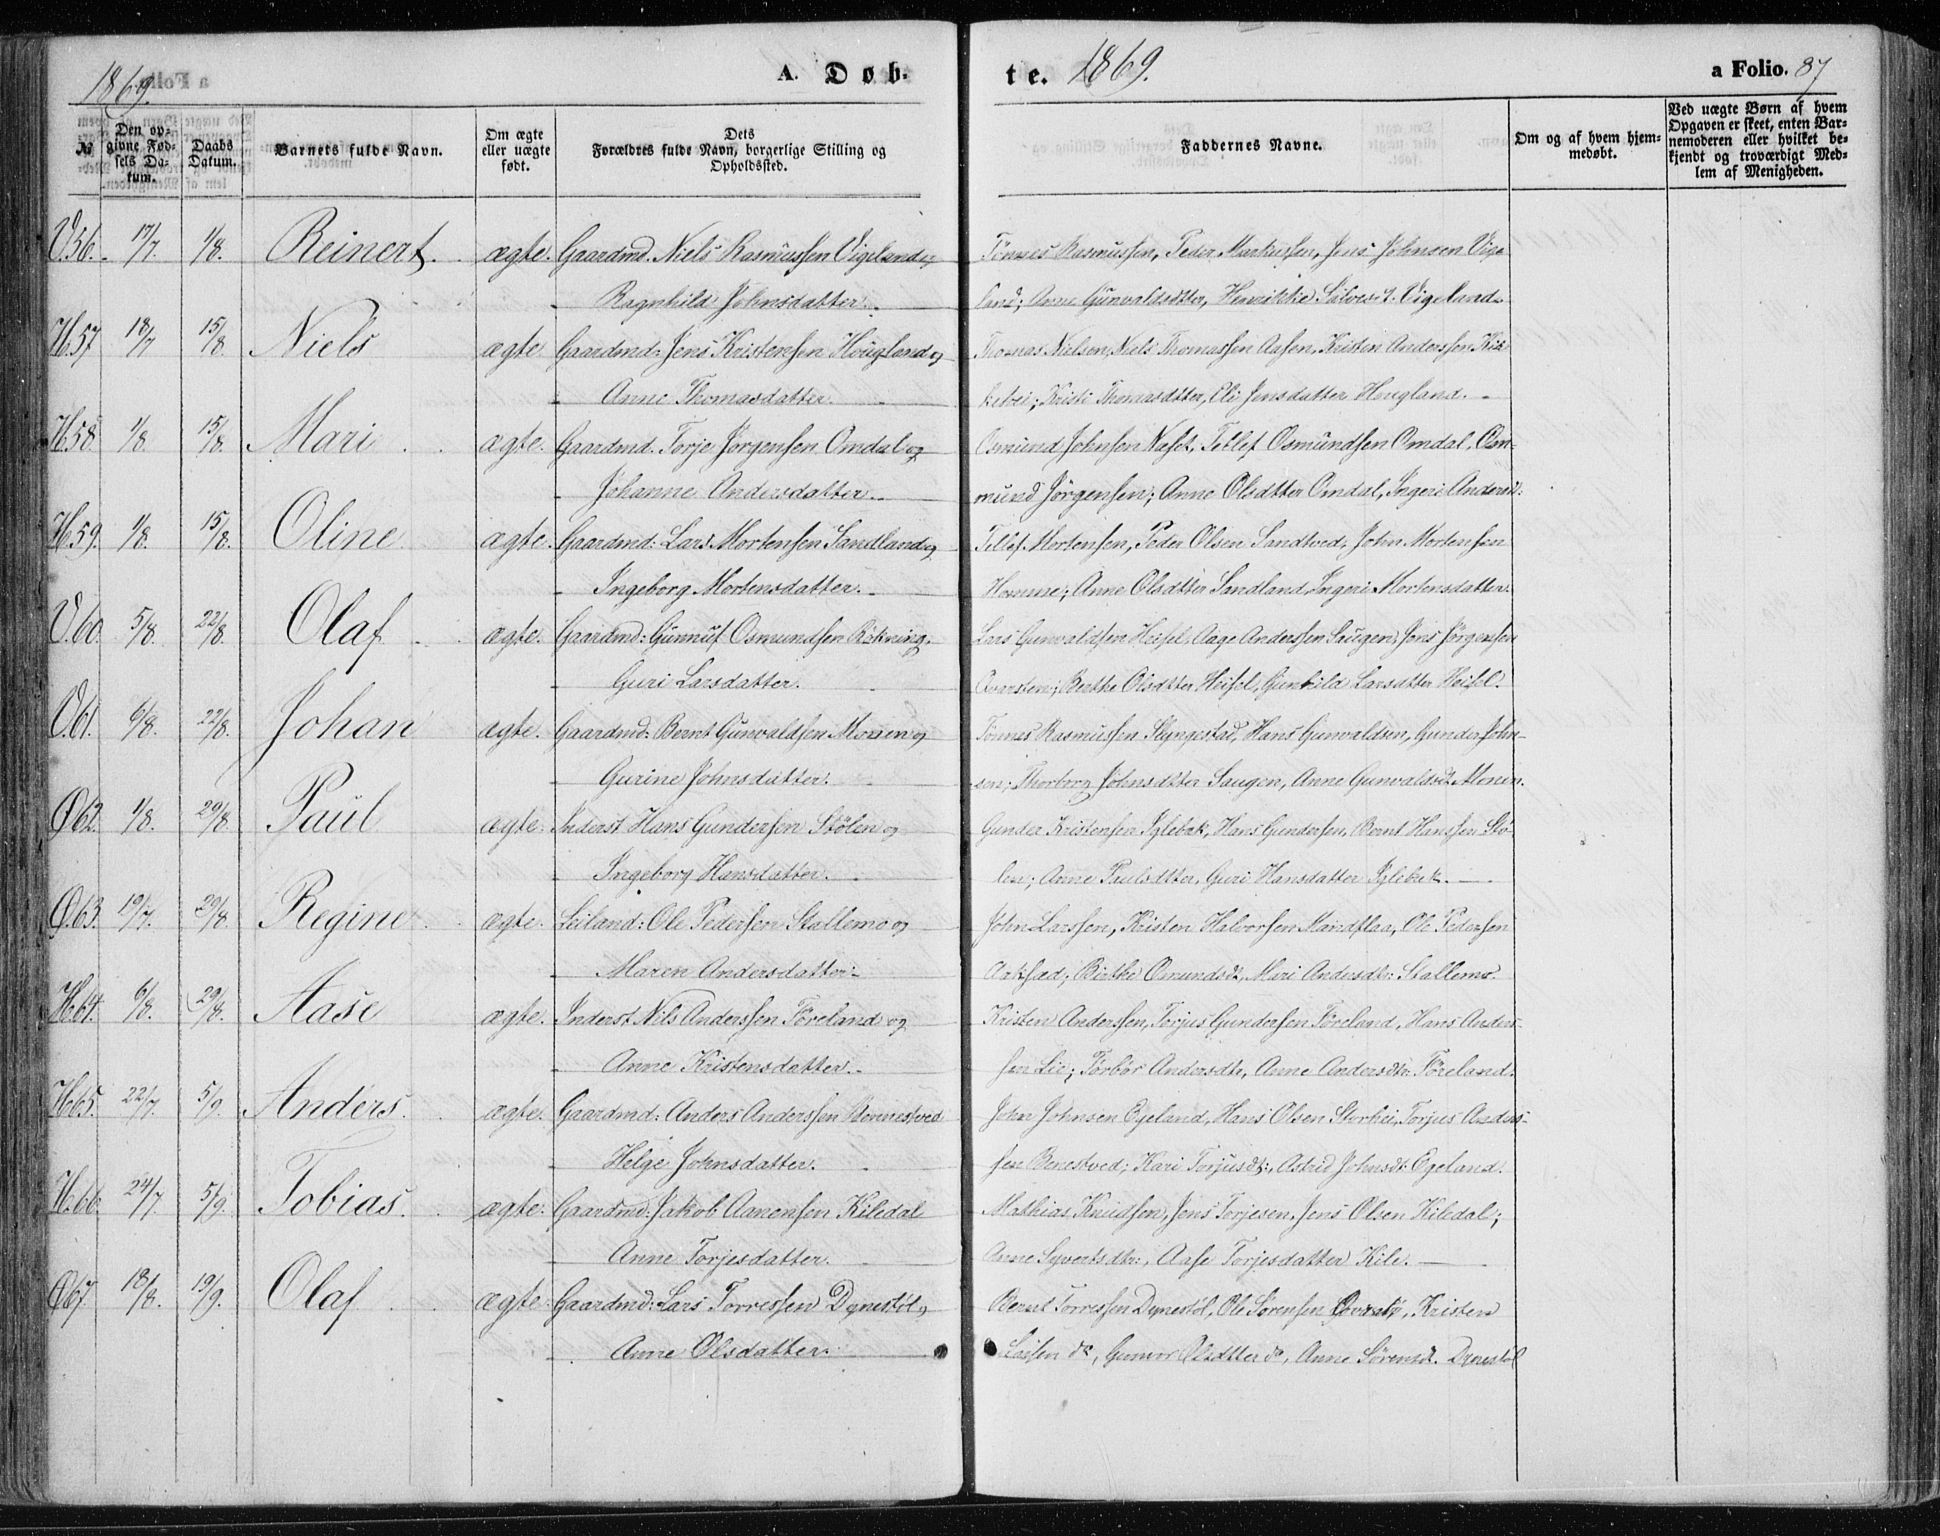 1869. A. Døb-
te. 1869. a Folio. 87
№ Den opgivne Fødsels Datum. Daabs Datum. Barnets fulde Navn. Om ægte eller uægte født. Dets Forældres fulde Navn, borgerlige Stilling og Opholdssted.
Faddernes Navne. Om og af hvem hjemmedøbt. Ved uægte Børn af hvem Opgaven er skeet, enten Barnemoderen eller hvilket bekjendt og troværdigt Medlem af Menigheden.
V.56. 17/7. 1/8. Reinert. ægte. Gaardmd. Niels Rasmussen Vigeland og
Ragnhild Johnsdatter.
Tønnes Rasmussen, Peder Markussen, Jens Johnsen Vige
land; Anne Gunvaldsdtter, Henrikke Salves.d. Vigeland.
H.57 18/7 15/8. Niels ægte. Gaardmd: Jens Kristensen Hougland og
Anne Thomasdatter.
Thomas Nielsen, Niels Thomassen Aasen, Kristen Anderssen Kir
kebei; Kristi Thomasdtter, Oli Jensdatter Hougland.
H.58. 1/8. 15/8. Mari ægte. Gaardmd. Torje Jørgensen Omdal og
Johanne Andersdatter.
Osmund Johnsen Naset, Tellef Osmundsen Omdal, Osm-
mund Jørgensen; Anne Olsdtter Omdal, Ingeri Andersdt:
H.59. 1/8. 15/8. Oline ægte. Gaardmd: Lars Mortensen Sandland og
Ingeborg Mortensdatter.
Tellef Mortensen, Peder Olsen Sandtved, John Mortensen
Homme; Anne Olsdtter Sandland, Ingeri Mortensdatter.
V.60. 5/8. 22/8. Olaf ægte. Gaardmd: Gunnuf Osmundsen Røkning,
Guri Larsdatter.
Lars Gunvaldsen Heisel, Aage Anderssen Saugen, Jens Jørgensen
Berthe Olsdtter Heisel, Gunhild Larsdtter Heisel.
V.61. 6/8. 22/8. Johan ægte. Gaardmd: Bernt Gunvaldsen Monen og
Gurine Johnsdatter.
Tønnes Rasmussen Slyngestad, Hans Gunvaldsen, Gunder John-
sen; Thorborg Johnsdtter Saugen, Anne Gunvaldsdt Monen.
Ø62. 1/8. 29/8. Paul ægte. Inderst Hans Gundersen Stølen og
Ingeborg Hansdatter.
Gunder Kristensen Iglebæk, Hans Gundersen, Bernt Hanssen Stø-
len; Anne Paulsdtter, Guri Hansdatter Iglebæk.
Ø.63. 19/7. 29/8 Regine ægte. Leiland: Ole Pedersen Stallemo og
Maren Andersdatter
John Larssen, Kristen Halvorsen Mandflaa, Ole Pedersen
Birthe Omundsdt, Mari Andersdtr: Stallemo.
H.64. 6/8. 29/8. Aase ægte. Inderst Nils Anderssen Føreland og
Anne Kristensdatter.
Kristen Anderssen, Torjus Gundersen Føreland, Hans Anders-
sen Lie; Torbor Andersdtr, Anne Andersdtr. Føreland.
H.65. 22/7. 5/9. Anders. ægte. Gaardmd: Anders Anderssen Bennestved
Helge Johnsdatter.
John Johnsen Egeland, Hans Olsen Storhei, Torjus Anders-
sen Benestved; Kari Torjusdt:, Astrid Johnsdt. Egeland.
H.66. 24/7. 5/9. Tobias. ægte. Gaardmd: Jakob Aanensen Kiledal
Anne Torjesdatter.
Mathias Knudsen, Jens Torjesen, Jens Olsen Kiledal;
Anne Syvertsdtr:, Aase Torjesdatter Kile.
Ø67. 18/8. 19/9. Olaf ægte Gaardmd: Lars Torressen Dynestøl og
Anne Olsdatter.
Bernt Torressen Dynestøl, Ole Sørensen, Kristen
Larsen do, Gunvor Olsdtter do, Anne Sørensdt. Dynestøl